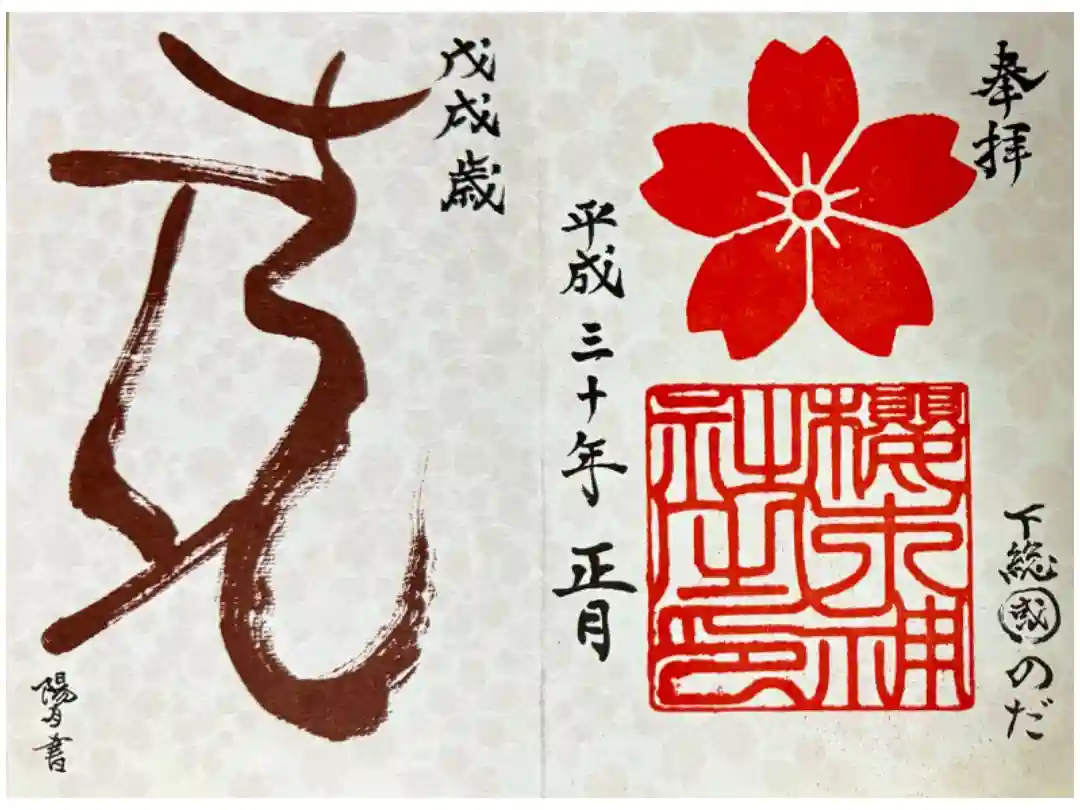 奉拝
下総国のだ
櫻木神
社之印
平成三十年 正月
戊戌歳